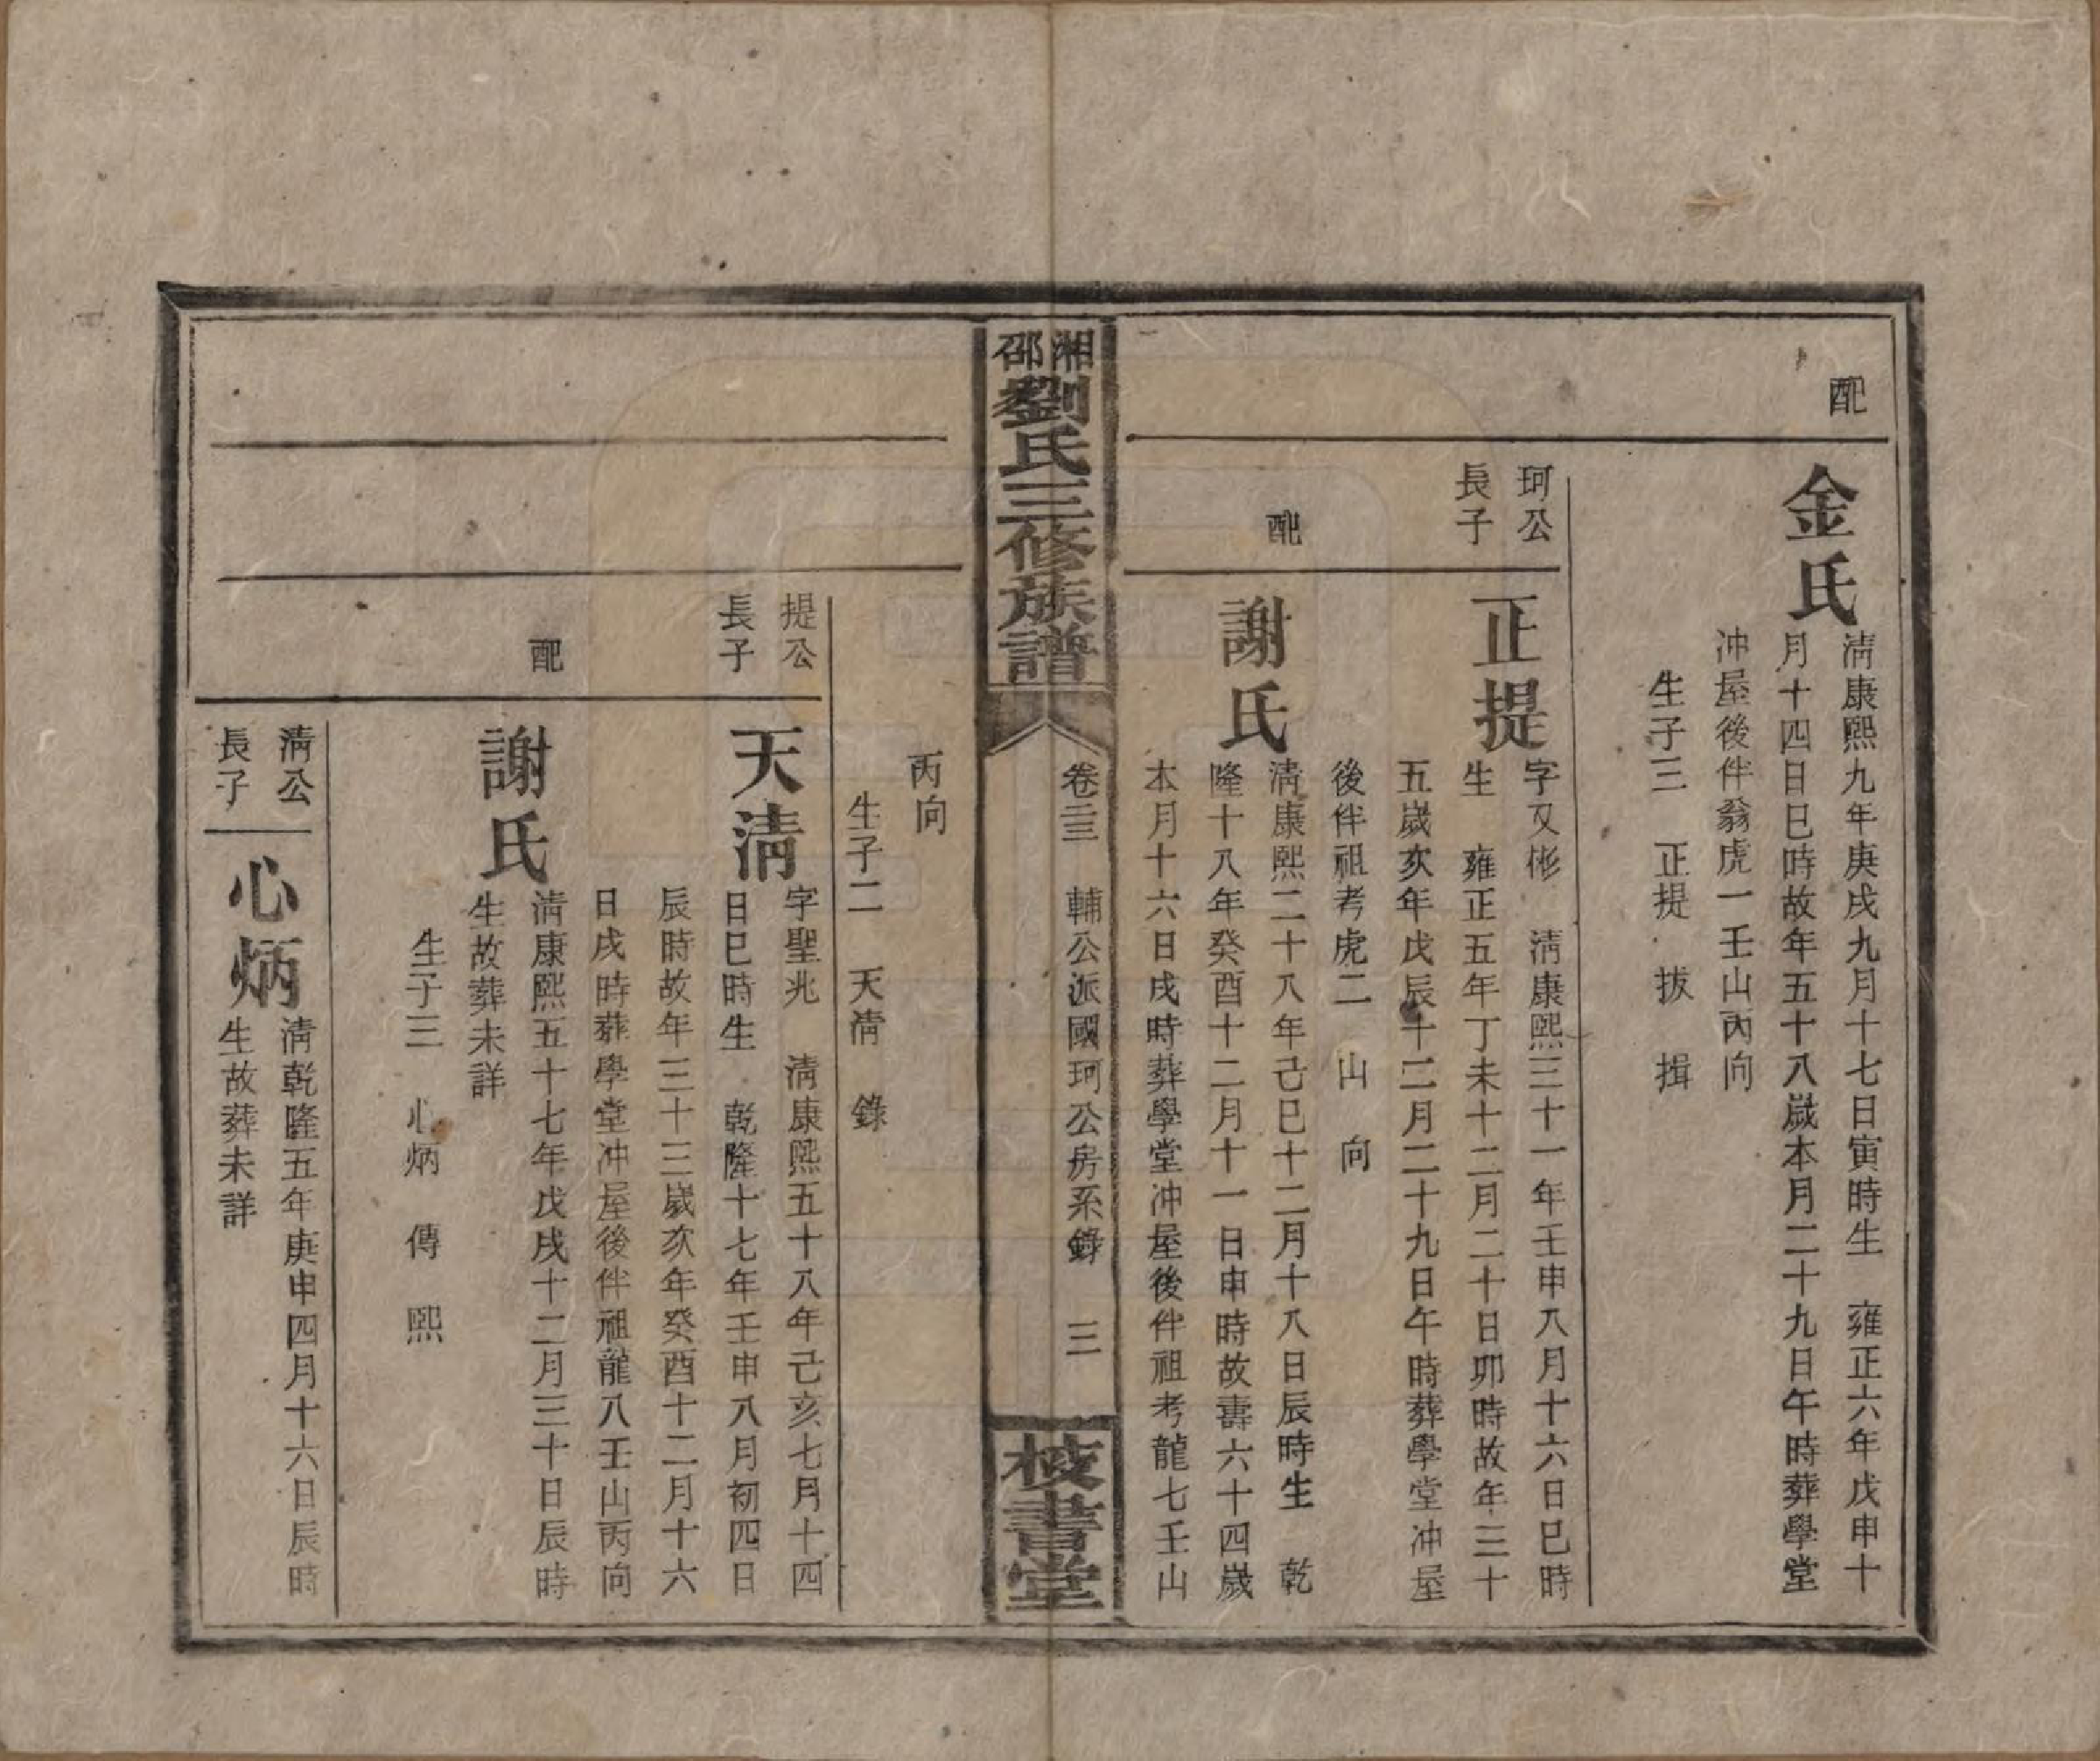 配
金氏
清康熙九年庚戌九月十七日寅時生　雍正六年戊申十
月十四日巳時故年五十八歲本月二十九日午時葬學堂
冲屋後伴翁虎一壬山丙向
生子三　正提　拔　揖
珂公
長子
正提
字又彬　清康熙三十一年壬申八月十六日巳時
生　雍正五年丁未十二月二十日卯時故年三十
五歲亥年戊辰十二月二十九日午時葬學堂冲屋
後伴祖考虎二　山　向
配
謝氏
清康熙二十八年己巳十二月十八日辰時生　乾
隆十八年癸酉十二月十一日申時故壽六十四歲
本月十六日戌時葬學堂冲屋後伴祖考龍七壬山
湘邵
劉氏三修族譜
卷二三　輔公派國珂公房系錄　三
校書堂
丙向
生子二　天清　錄
提公
長子
天清
字聖兆　清康熙五十八年己亥七月十四
日巳時生　乾隆十七年壬申八月初四日
辰時故年三十三歲次年癸酉十二月十六
日戌時葬學堂冲屋後伴祖龍八壬山丙向
配
謝氏
清康熙五十七年戊戌十二月三十日辰時
生故葬未詳
生子三　心炳　傳　熙
清公
長子
心炳
清乾隆五年庚申四月十六日辰時
生故葬未詳